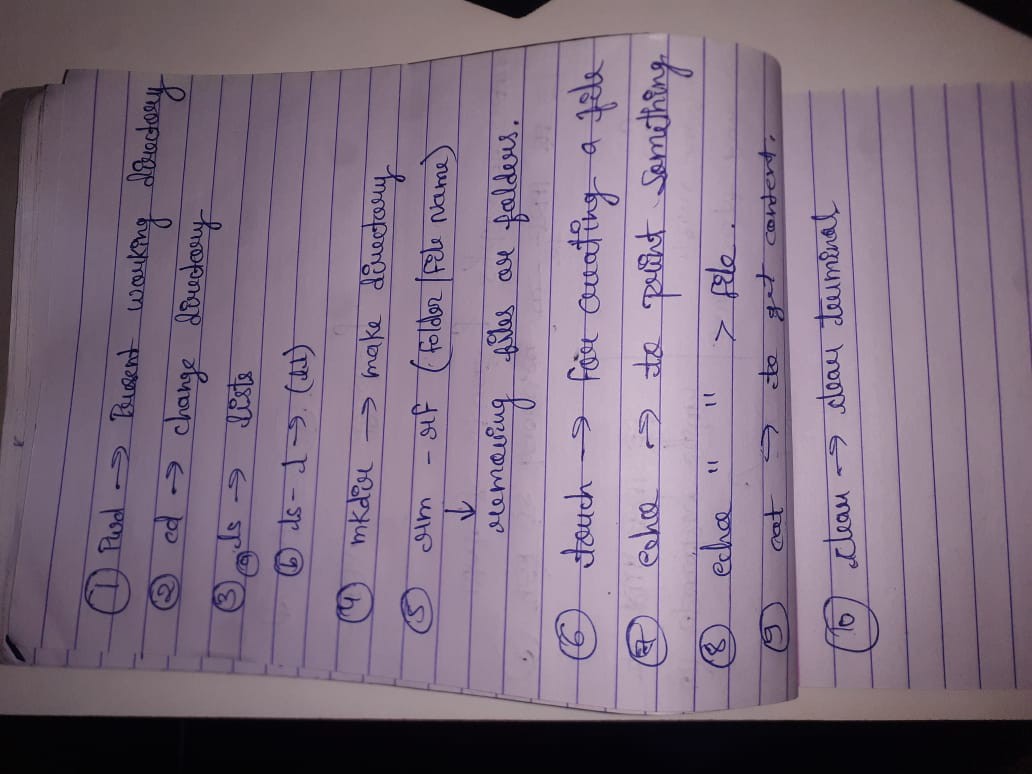 ① Pwd → Present working directory
② cd → change directory
③ ⓐ ls → lists
ⓑ ls - l → (ll)
④ mkdir → make directory
⑤ rm - rf (folder | file Name)
↓
removing files or folders.
⑥ touch → for creating a file
⑦ echo → to print something
⑧ echo " " > file.
⑨ cat → to get content.
⑩ clear → clear terminal